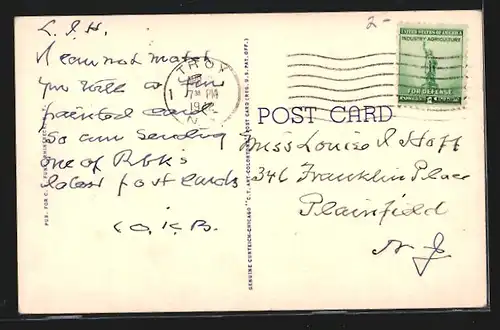 2-
L. I. H.
I can not match
you with a
painted card
so am sending
one of R.P.K's
latest post cards
C.K.B.
TROY
1
7 PM
19
N.Y.
UNITED STATES OF AMERICA
INDUSTRY AGRICULTURE
FOR DEFENSE
POST CARD
Miss Louise I. Hoff
346 Franklin Place
Plainfield
N. J.
GENUINE CURTEICH-CHICAGO "C.T. ART-COLORTONE" POST CARD (REG. U.S. PAT. OFF.)
PUB. FOR C.